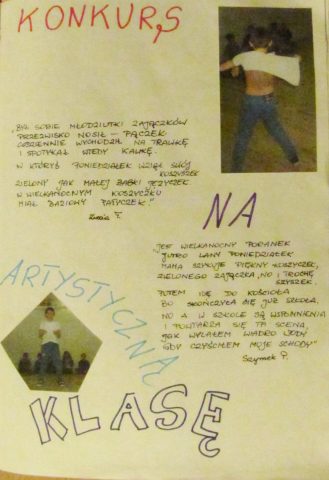 KONKURS
"BYŁ SOBIE MŁODZIUTKI ZAJĄCZKÓW
PRZEZWISKO NOSIŁ – PĄCZEK.
CODZIENNIE WYCHODZIŁ NA TRAWKĘ
I SPOTYKAŁ WTEDY KAWKĘ.
W KTÓRYŚ PONIEDZIAŁEK WZIĄŁ SWÓJ
KOSZYCZEK
ZIELONY JAK MAŁEJ ŻABKI JĘZYCZEK
W WIELKANOCNYM KOSZYCZKU
MIAŁ BAZIOWY PATYCZEK."
NA
"JEST WIELKANOCNY PORANEK
JUTRO LANY PONIEDZIAŁEK
MAMA SZYKUJE PIĘKNY KOSZYCZEK,
ZIELONEGO ZAJĄCZKA, NO I TROCHĘ
SZYSZEK.
POTEM IDĘ DO KOŚCIOŁA
BO SKOŃCZYŁA SIĘ JUŻ SZKOŁA,
NO A W SZKOLE SĄ WSPOMNIENIA
I POWTARZA SIĘ TA SCENA,
JAK WYLAŁEM WIADRO WODY
GDY CZYŚCIŁEM MOJE SCHODY"
Szymek P.
ARTYSTYCZNĄ
KLASĘ